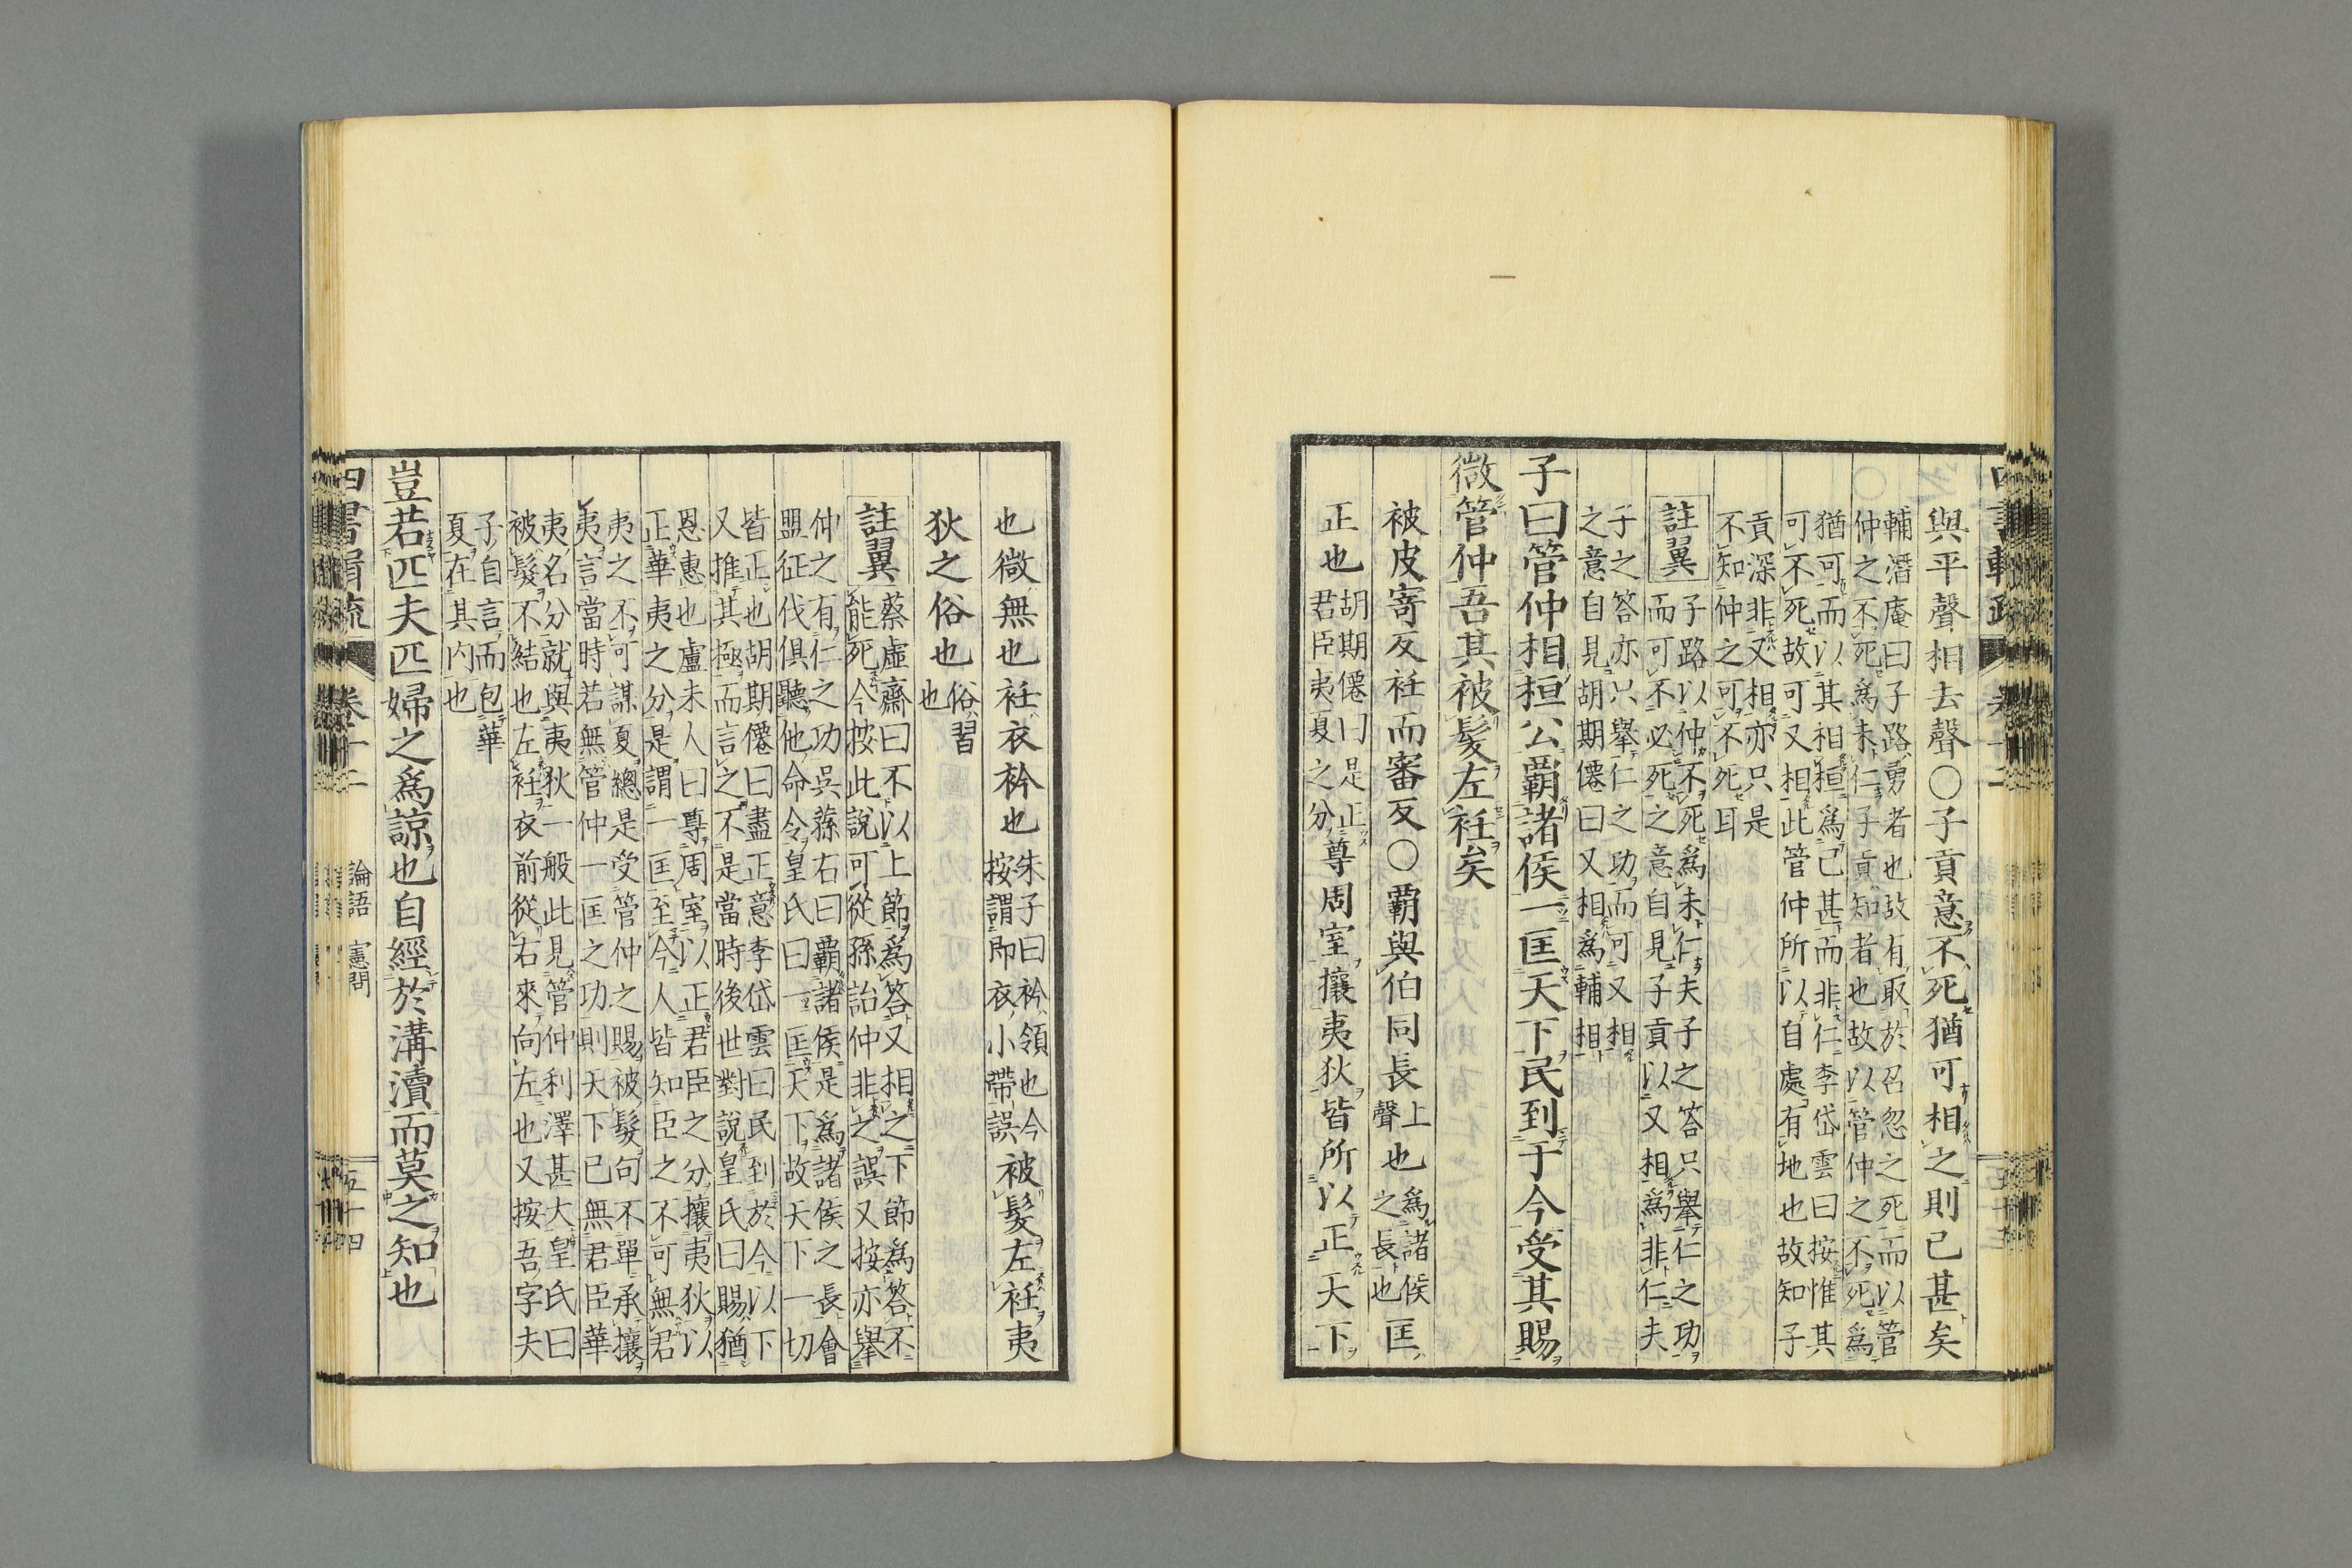 與平聲相去聲〇子貢意不死猶可相之則已甚矣
輔潛庵曰子路勇者也故有取於召忽之死而以管
仲之不死為未仁子貢知者也故以管仲之不死為
猶可而以其相桓為已甚而非仁李岱雲曰按惟其
可不死故可又相此管仲所以自處有地也故知子
貢深非又相亦只是
不知仲之可不死耳
註翼
子路以仲不死為未仁夫子之答只舉仁之功
而可不必死之意自見子貢以又相為非仁夫
子之答亦只舉仁之功而可又相
之意自見胡期僊曰又相為輔相
子曰管仲相桓公霸諸侯一匡天下民到于今受其賜
微管仲吾其被髮左衽矣
被皮寄反衽而審反〇霸與伯同長上聲也為諸侯之長也匡
正也胡期僊曰是正君臣夷夏之分尊周室攘夷狄皆所以正天下
也微無也衽衣衿也朱子曰衿領也今按謂即衣小帶誤被髮左衽夷
狄之俗也俗習也
註翼
蔡虛齋曰不以上節為答又相之下節為答不
能死今按此說可從孫詒仲非之誤又按亦舉
仲之有仁之功吳蓀右曰霸諸侯是為諸侯之長會
盟征伐俱聽他命令皇氏曰一匡天下故天下一切
皆正也胡期僊曰盡正意李岱雲曰民到於今以下
又推其極而言之不是當時後世對說皇氏曰賜猶
恩惠也盧未人曰尊周室以正君臣之分攘夷狄以
正華夷之分是謂一匡至今人皆知臣之不可無君
夷之不可謀夏總是受管仲之賜被髮句不單承攘
夷言當時若無管仲一匡之功則天下已無君臣華
夷名分就與夷狄一般此見管仲利澤甚大皇氏曰
被髮不結也左衽衣前從右來向左也又按吾字夫
子自言而包華
夏在其內也
豈若匹夫匹婦之為諒也自經於溝瀆而莫之知也
卷十二
論語 憲問
五十四